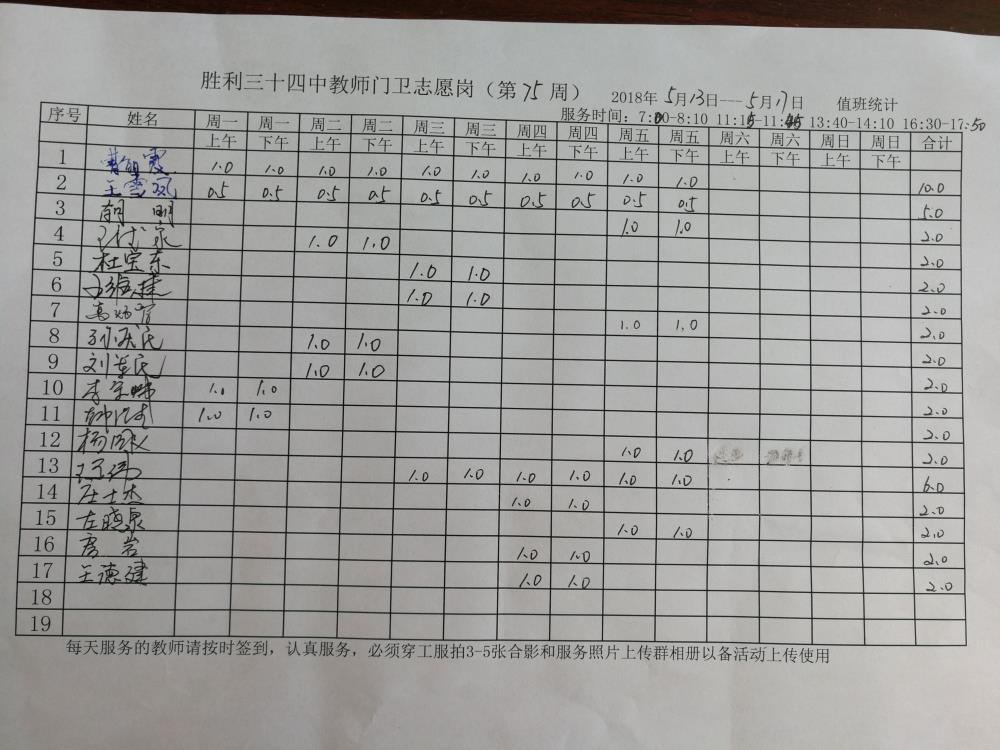 胜利三十四中教师门卫志愿岗（第75周） 2018年5月13日---5月17日 值班统计
服务时间：7:00-8:10 11:15-11:45 13:40-14:10 16:30-17:50
序号 姓名 周一 周一 周二 周二 周三 周三 周四 周四 周五 周五 周六 周六 周日 周日 合计
上午 下午 上午 下午 上午 下午 上午 下午 上午 下午 上午 下午 上午 下午
1 霞 1.0 1.0 1.0 1.0 1.0 1.0 1.0 1.0 1.0 1.0 10.0
2 王雪凤 0.5 0.5 0.5 0.5 0.5 0.5 0.5 0.5 0.5 0.5 5.0
3 明 1.0 1.0 2.0
4 1.0 1.0 2.0
5 杜宝东 1.0 1.0 2.0
6 1.0 1.0 2.0
7 1.0 1.0 2.0
8 民 1.0 1.0 2.0
9 刘 民 1.0 1.0 2.0
10 李 1.0 1.0 2.0
11 1.0 1.0 2.0
12 杨 1.0 1.0 2.0
13 1.0 1.0 1.0 1.0 1.0 1.0 6.0
14 庄士杰 1.0 1.0 2.0
15 左晓泉 1.0 1.0 2.0
16 房岩 1.0 1.0 2.0
17 王德建 1.0 1.0 2.0
18
19
每天服务的教师请按时签到，认真服务，必须穿工服拍3-5张合影和服务照片上传群相册以备活动上传使用